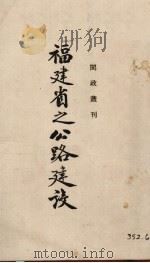 閩政叢刊
福建省之公路建設
352.6